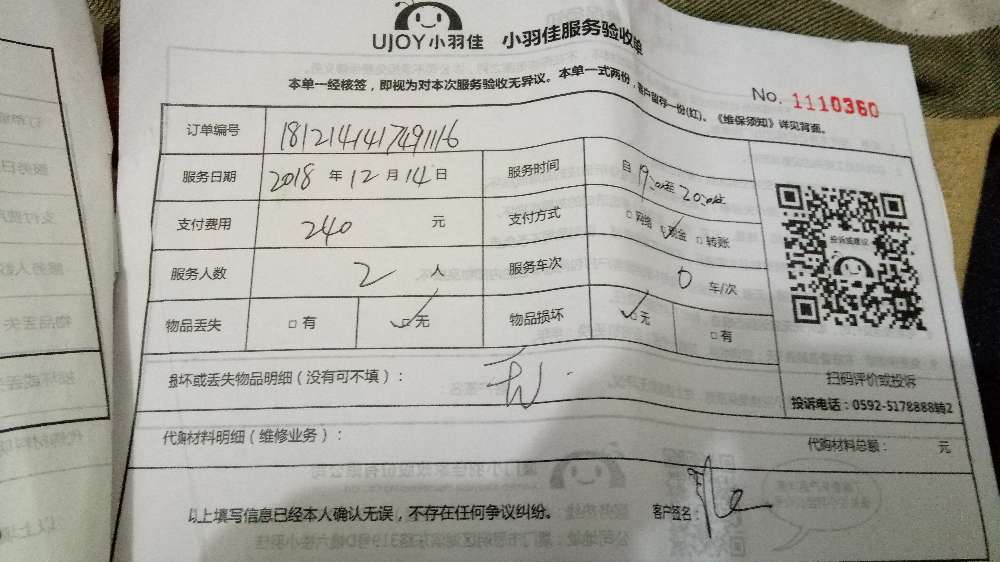 UJOY小羽佳 小羽佳服务验收单
本单一经核签，即视为对本次服务验收无异议。本单一式两份，客户留存一份(红)。《维保须知》详见背面。
No. 1110360
订单编号 1812141417491116
服务日期 2018 年 12 月 14 日 服务时间 自 19:00 至 20:00
支付费用 240 元 支付方式 □网络 ☑现金 □转账
服务人数 2 人 服务车次 0 车/次
物品丢失 □有 ☑无 物品损坏 ☑无 □有
投诉或建议
扫码评价或投诉
投诉电话：0592-5178888转2
损坏或丢失物品明细（没有可不填）： 无
代购材料明细（维修业务）： 代购材料总额： 元
以上填写信息已经本人确认无误，不存在任何争议纠纷。 客户签名：